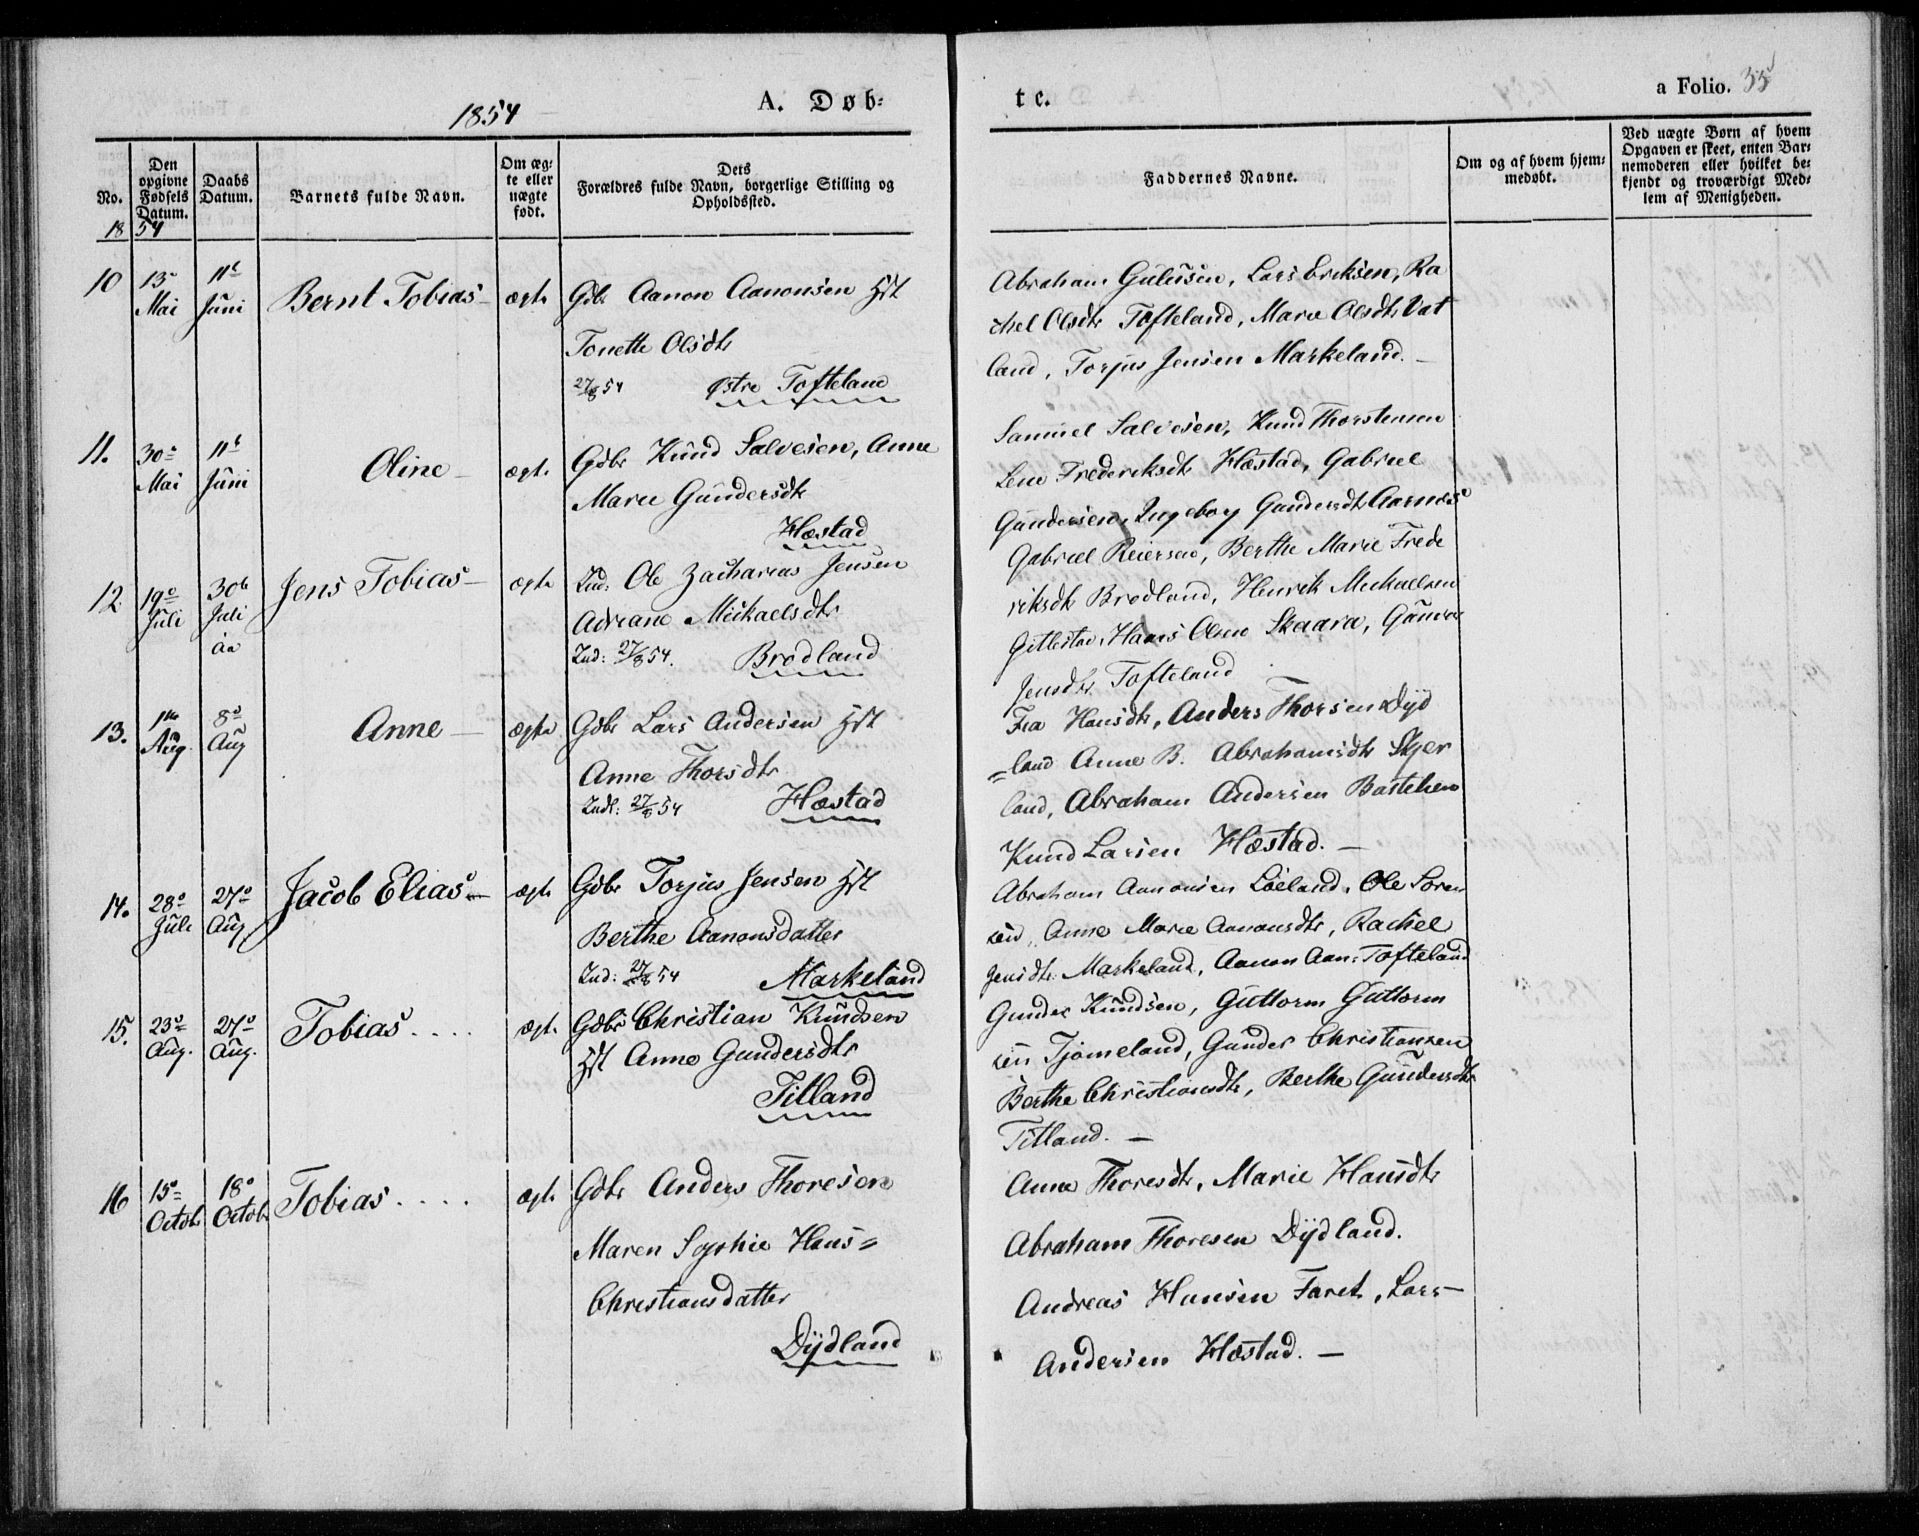 1854
A. Døb-
te.
a Folio. 35
No.
Den opgivne Fødsels Datum.
Daabs Datum.
Barnets fulde Navn.
Om ægte eller uægte født.
Dets Forældres fulde Navn, borgerlige Stilling og Opholdssted.
Faddernes Navne.
Om og af hvem hjemmedøbt.
Ved uægte Børn af hvem Opgaven er skeet, enten Barnemoderen eller hvilket bekjendt og troværdigt Medlem af Menigheden.
1854
10 13 Mai 11 Juni Bernt Tobias ægte Gdbr Aanon Aanonsen Hst
Tonette Olsdtr
27/8 54 østre Tofteland
Abraham Gulussen, Lars Eriksen, Ra
chel Olsdtr Tofteland, Marie Olsdtr Vat
land, Torjus Jensen Markeland. –
11. 30 Mai 11 Juni Oline – ægte Gdbr Knud Salvesen, Anne
Marie Gundersdtr
Hæstad
Samuel Salvesen, Knud Thorstensen
Lene Frederiksdtr Hæstad, Gabriel
Gundersen, Ingeborg Gundersdtr Aarnes
12. 19 Juli 30 Juli Jens Tobias – ægte Ind. Ole Zacharias Jensen
Adriane Mickaelsdtr
Ind: 27/8 54. Brødland
Gabriel Reiersen, Berthe Marie Frede
riksdtr Brødland, Henrik Mickaelsen
Gitlestad, Hans Olsen Skaara, Gunvor
Jensdtr Tofteland
13. 1 Aug. 8 Aug Anne – ægte Gdbr Lars Andersen Hst
Anne Thorsdtr
Indl: 27/8 54 Hæstad
Fra Hansdtr, Anders Thorsen Dyd
=land Anne B. Abrahamsdtr Skjer
land, Abraham Andersen
Knud Larsen Hæstad. –
14. 28 Juli 27 Aug Jacob Elias – ægte Gdbr Torjus Jensen Hst
Berthe Aanonsdatter
Ind: 27/8 54 Markeland
Abraham Aanonsen Løeland, Ole Soren
sen, Anne Marie Aanonsdtr, Rachel
Jensdtr Markeland, Aanon Aan: Tofteland
15. 23 Aug. 27 Aug. Tobias.... ægte Gdbr Christian Knudsen
Hst Anne Gundersdtr
Titland
Gunder Knudsen, Guttorm Guttorm
sen Tjomeland, Gunder Christiansen
Berthe Christiansdtr, Berthe Gundersdtr
Titland. –
16 15 Octobr 18 Octobr Tobias.... ægte Gdbr Anders Thoresen
Maren Sophie Hans=
Christiansdatter
Dydland
Anne Thoresdtr, Marie Hansdtr
Abraham Thoresen Dydland.
Andreas Hansen Faret, Lars
Andersen Hæstad. –